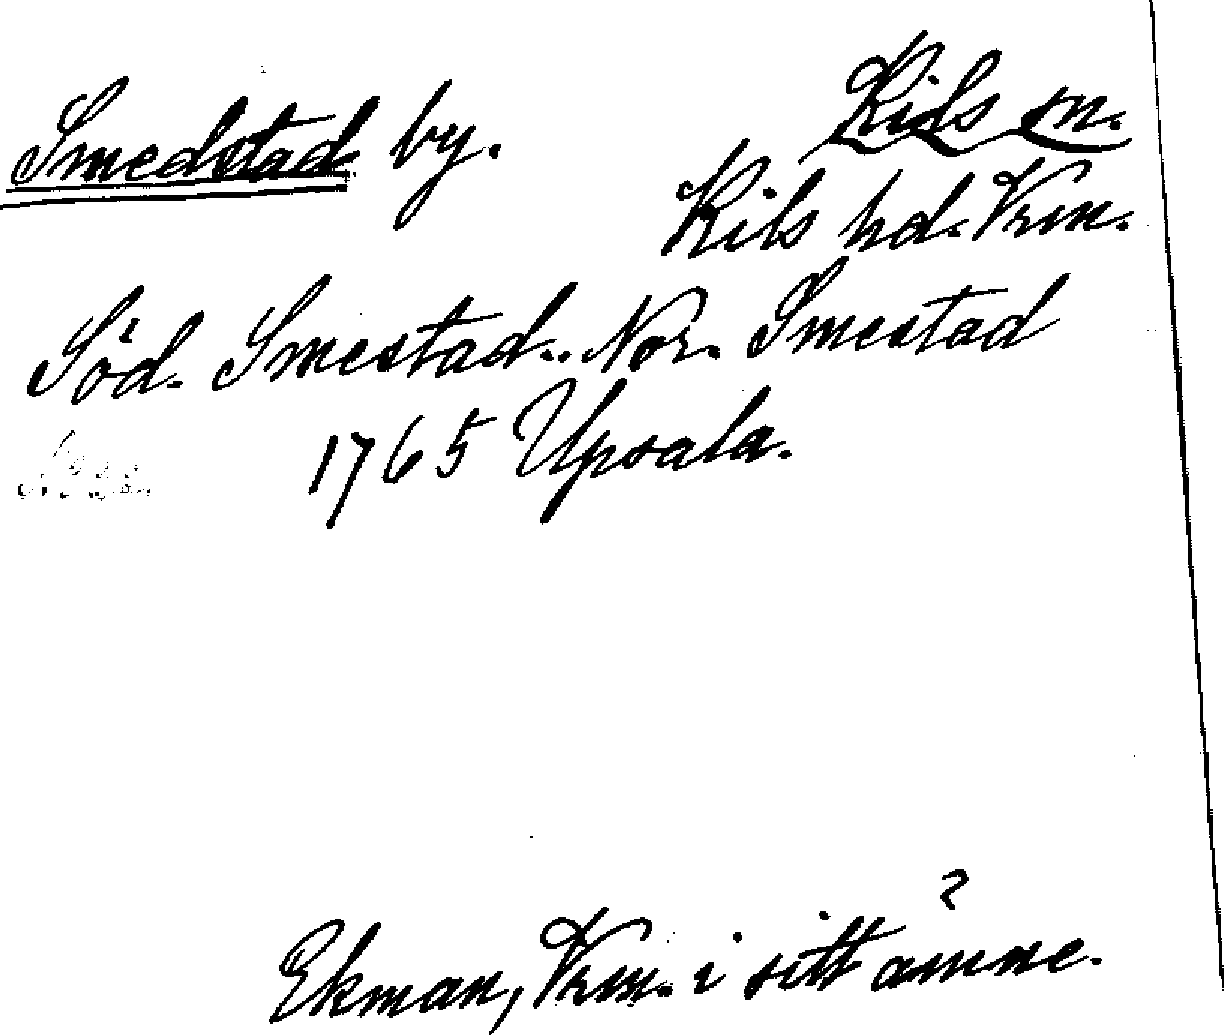 Smedstad by.
Kils sn.
Kils hd. Vrm.
Söd. Smestad.. Nor. Smestad
1765 Upsala.
?
Ekman, Vrm. i sitt ämne.